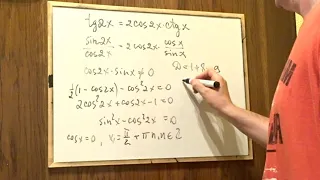 tg2x = 2cos2x · ctgx
sin2x/cos2x = 2cos2x · cosx/sinx
D = 1 + 8 = 9
cos2x · sinx ≠ 0
½(1 - cos2x) - cos²2x = 0
2cos²2x + cos2x - 1 = 0
sin²x - cos²2x = 0
cosx = 0, x₁ = π/2 + πn, n∈Z